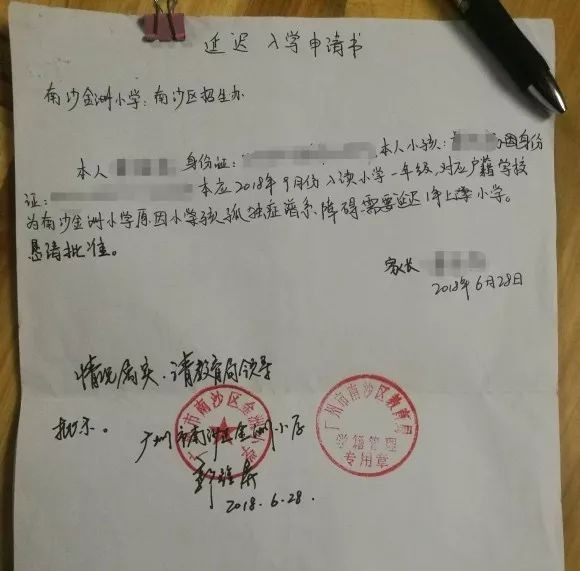 延迟入学申请书
南沙金洲小学:南沙区招生办
本人 身份证: 本人小孩: 身份
证: 本应2018年9月份入读小学一年级,对应户籍学校
为南沙金洲小学原因小孩孤独症谱系障碍需要延迟1年上小学。
恳请批准。
家长
2018年6月28日
情况属实,请教育局领导
批示。
广州市南沙区金洲小学
2018.6.28.
广州市南沙区教育局
学籍管理
专用章